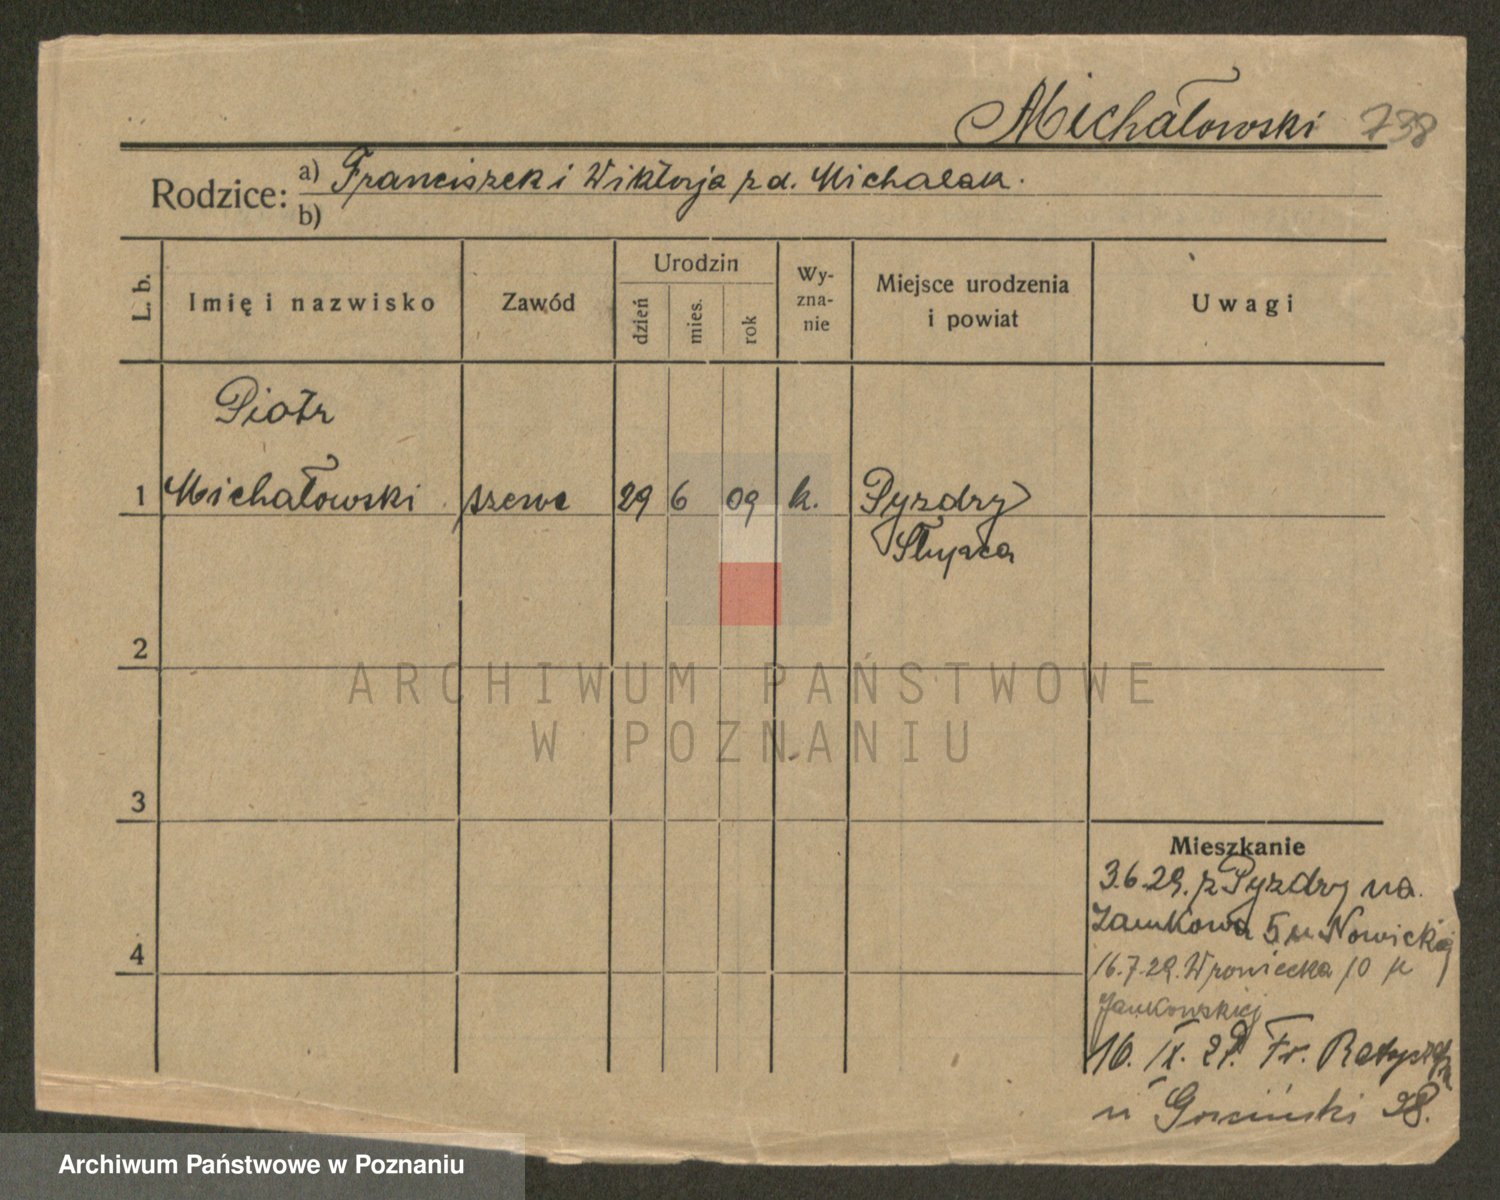 Michałowski 738
Rodzice: a) Franciszek i Wiktorja z d. Michalak.
b)
L. b.
Imię i nazwisko
Zawód
Urodzin
dzień
mies.
rok
Wy-
zna-
nie
Miejsce urodzenia
i powiat
Uwagi
Piotr
1 Michałowski szewc 29 6 09 k. Pyzdry
Słupca
2
ARCHIWUM PAŃSTWOWE
W POZNANIU
3
Mieszkanie
3.6.29. z Pyzdry na
Zamkowa 5 u Nowickiej
4
16.7.29. Wroniecka 10 u
Jankowskiej
16. IX. 29. Fr. Ratajczaka
u 38.
Archiwum Państwowe w Poznaniu